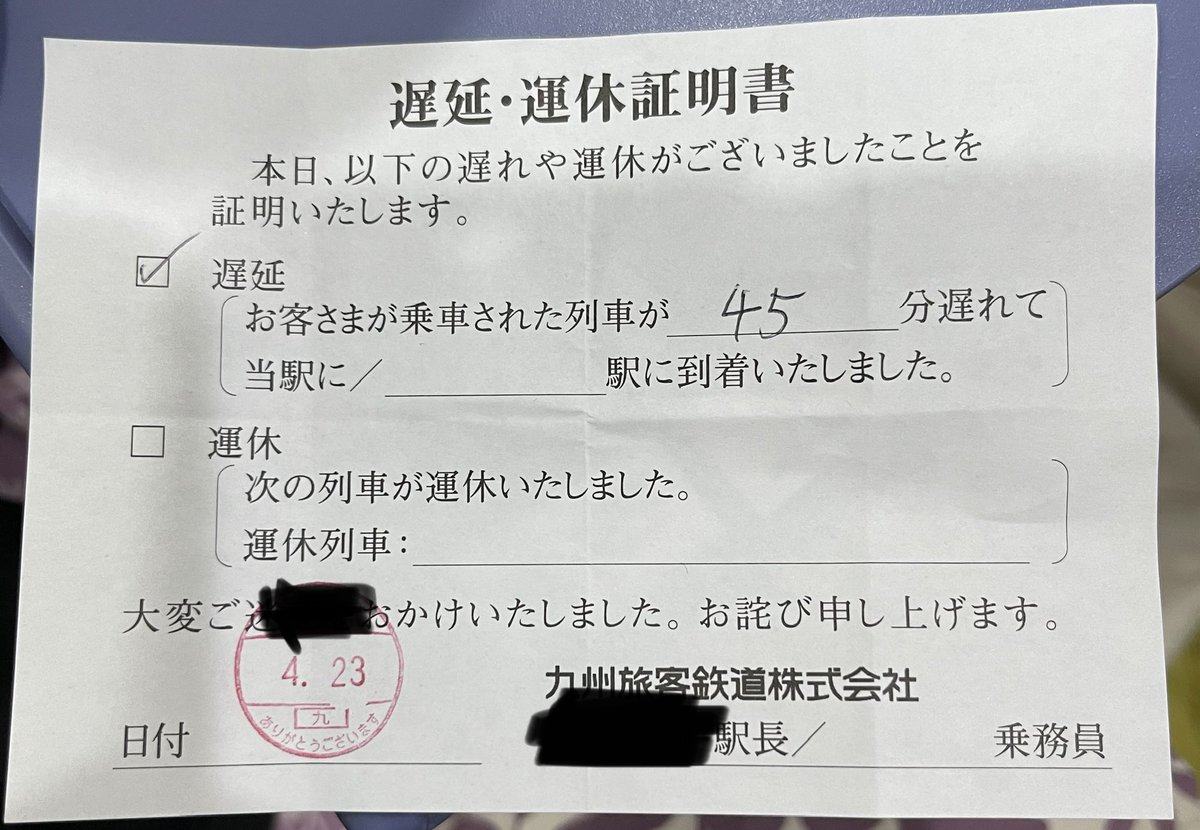 遅延・運休証明書
本日、以下の遅れや運休がございましたことを
証明いたします。
遅延
お客さまが乗車された列車が 45 分遅れて
当駅に／ 駅に到着いたしました。
運休
次の列車が運休いたしました。
運休列車：
大変ご迷 おかけいたしました。お詫び申し上げます。
4. 23
九
ありがとうございます
九州旅客鉄道株式会社
日付 駅長／ 乗務員